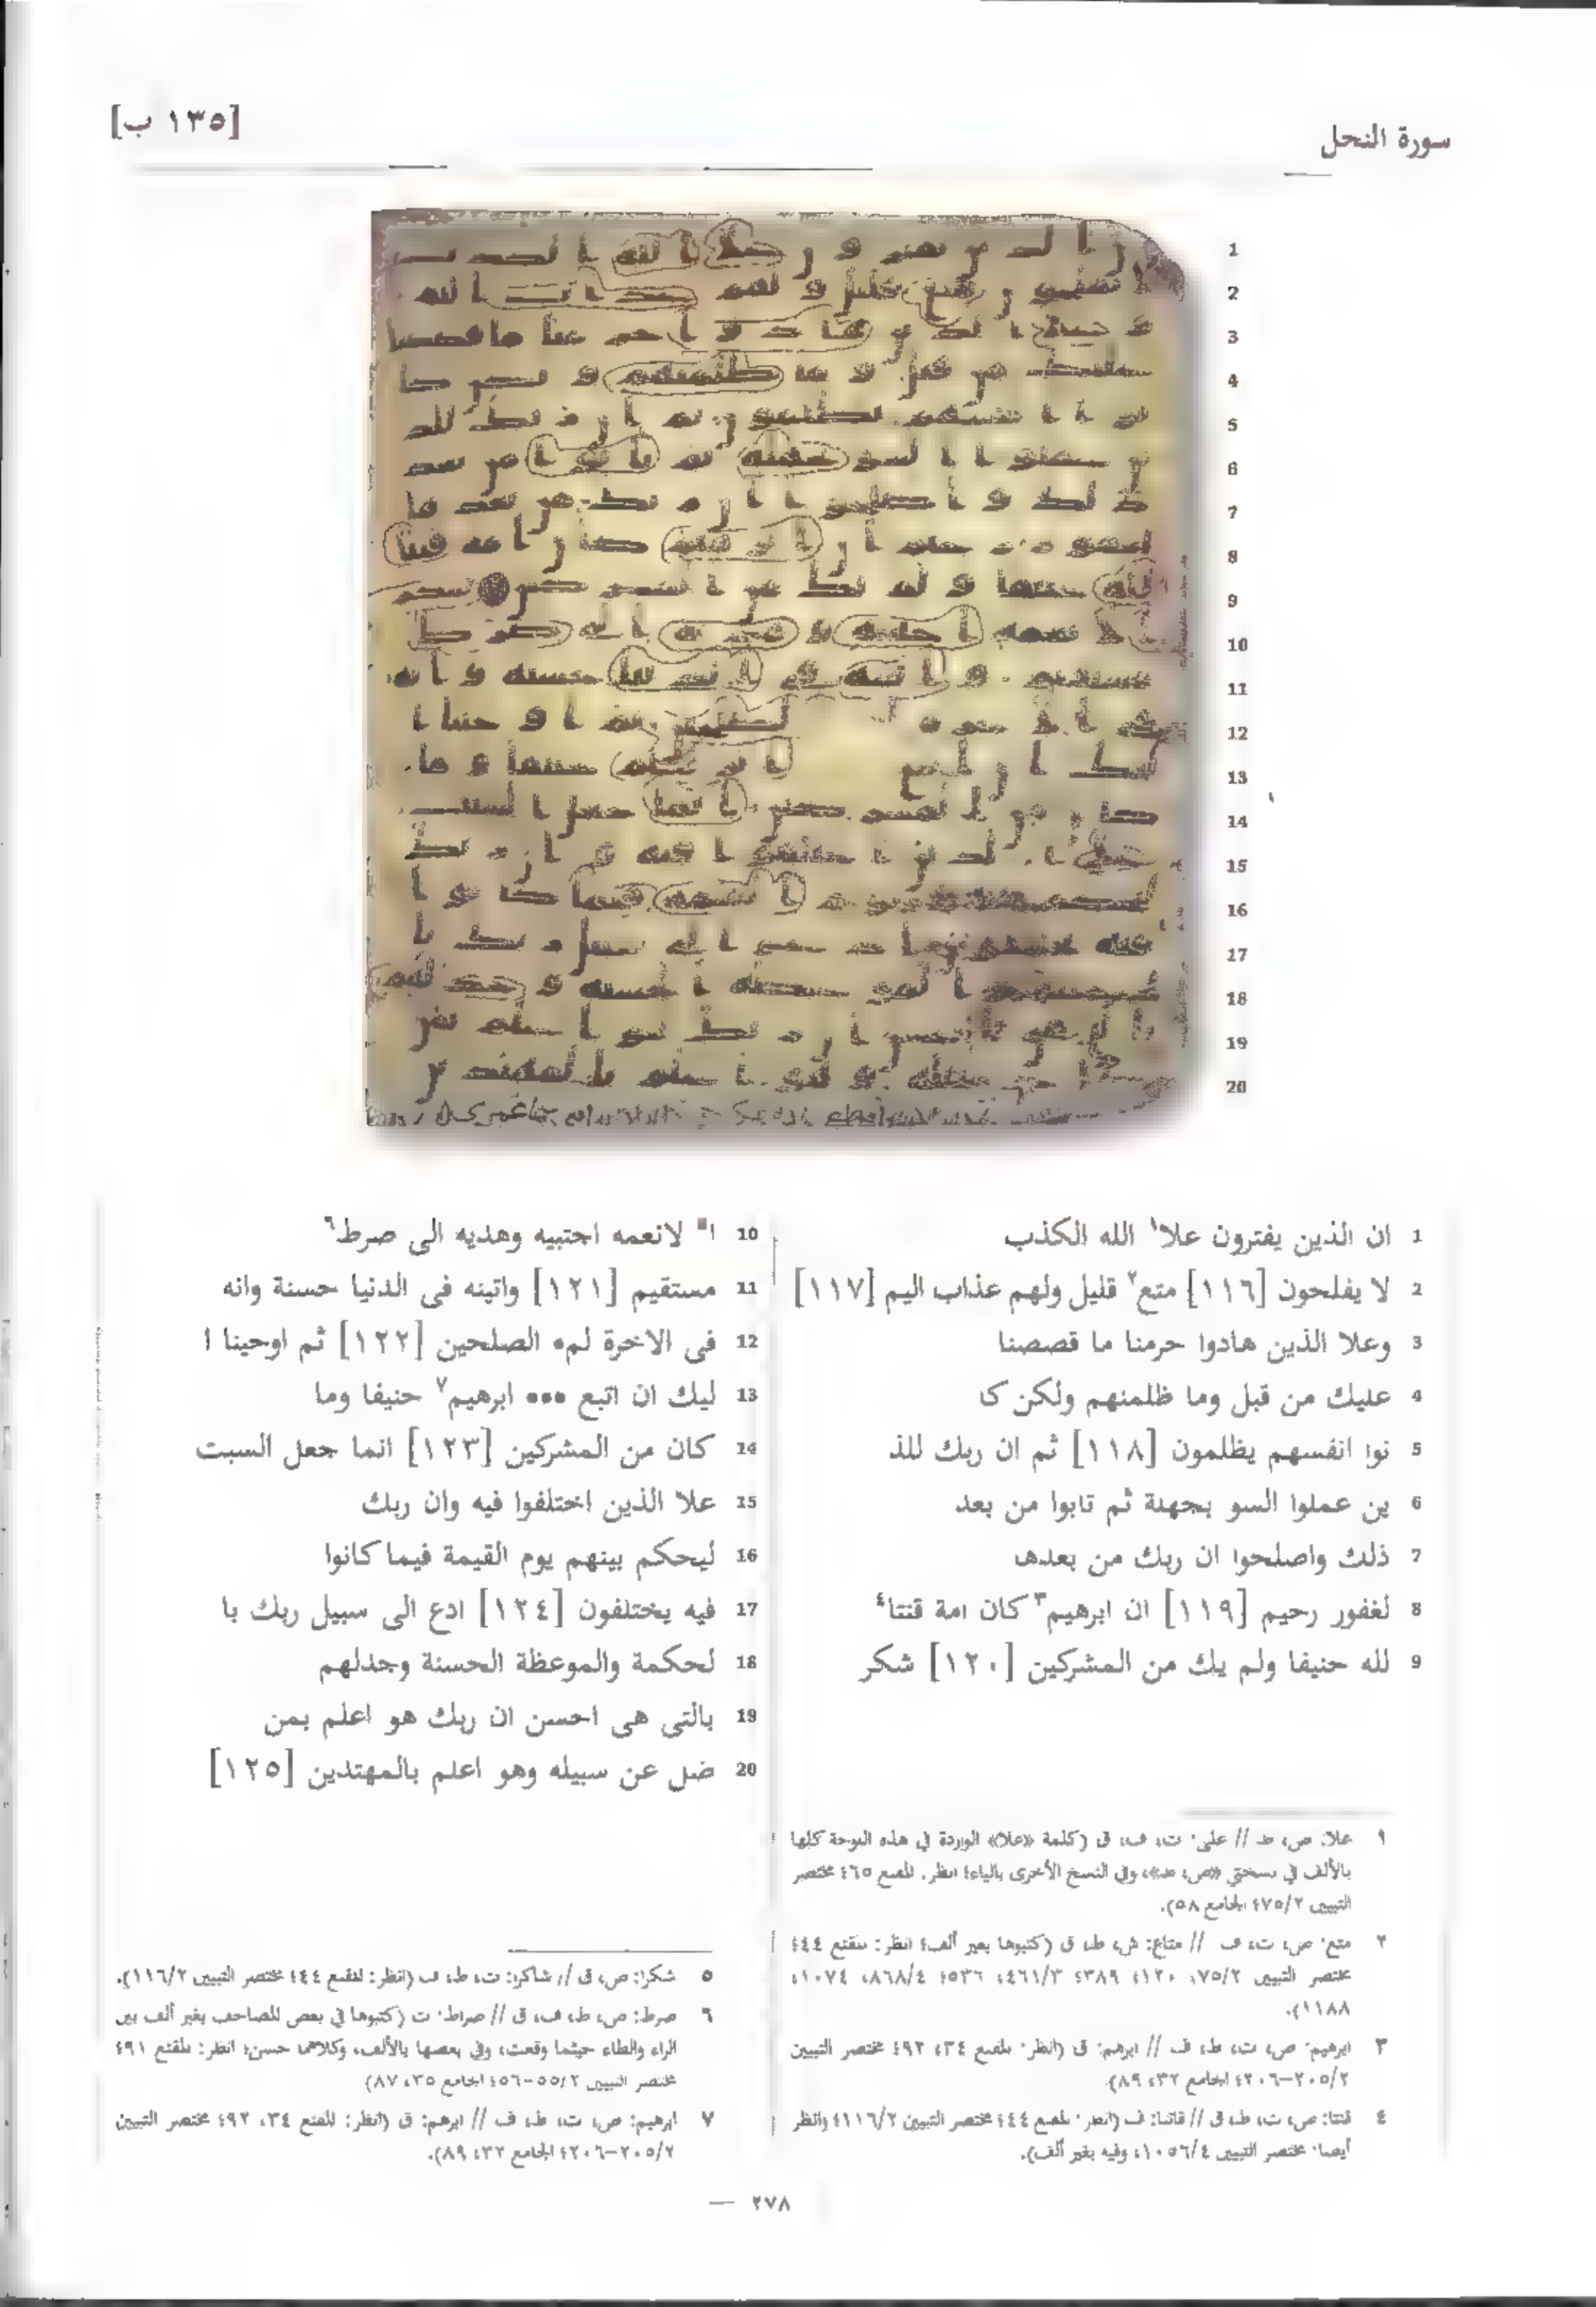 سورة النحل
[١٣٥ ب]
1
2
3
4
5
6
7
8
9
10
11
12
13
14
15
16
17
18
19
20
1 ان الذين يفترون علا١ الله الكذب
2 لا يفلحون [١١٦] متع٢ قليل ولهم عذاب اليم [١١٧]
3 وعلا الذين هادوا حرمنا ما قصصنا
4 عليك من قبل وما ظلمنهم ولكن كا
5 نوا انفسهم يظلمون [١١٨] ثم ان ربك للذ
6 ين عملوا السو بجهلة ثم تابوا من بعد
7 ذلك واصلحوا ان ربك من بعدها
8 لغفور رحيم [١١٩] ان ابرهيم٣ كان امة قنتا٤
9 لله حنيفا ولم يك من المشركين [١٢٠] شكر
10 ا٥ لانعمه اجتبيه وهديه الى صرط٦
11 مستقيم [١٢١] واتينه فى الدنيا حسنة وانه
12 فى الاخرة لم٥ الصلحين [١٢٢] ثم اوحينا ا
13 ليك ان اتبع ••• ابرهيم٧ حنيفا وما
14 كان من المشركين [١٢٣] انما جعل السبت
15 علا الذين اختلفوا فيه وان ربك
16 ليحكم بينهم يوم القيمة فيما كانوا
17 فيه يختلفون [١٢٤] ادع الى سبيل ربك با
18 لحكمة والموعظة الحسنة وجدلهم
19 بالتى هى احسن ان ربك هو اعلم بمن
20 ضل عن سبيله وهو اعلم بالمهتدين [١٢٥]
١ علا: ص، ط // على: ت، ف، ق (كلمة «علا» الواردة في هذه اللوحة كلها
بالألف في نسختي «ص، ط»، وفي النسخ الأخرى بالياء؛ انظر: المقنع ٤٦٥ مختصر
التبيين ٤٧٥/٢ الجامع ٥٨).
٢ متع: ص، ت، ف // متاع: ش، ط، ق (كتبوها بغير ألف؛ انظر: المقنع ٤٤٤
مختصر التبيين ٧٥/٢، ١٢٠، ٣٨٩؛ ٤٦١/٣، ٥٣٦؛ ٨٦٨/٤، ١٠٧٤،
١١٨٨).
٣ ابرهيم: ص، ت، ط، ف // ابرهم: ق (انظر: المقنع ٣٤، ٩٢؛ مختصر التبيين
٢٠٥/٢-٢٠٦؛ الجامع ٣٢، ٨٩).
٤ قنتا: ص، ت، ط، ق // قانتا: ف (انظر: المقنع ٤٤٤ مختصر التبيين ١١٦/٢؛ وانظر
أيضا: مختصر التبيين ١٠٥٦/٤، وفيه بغير ألف).
٥ شكرا: ص، ق // شاكرا: ت، ط، ف (انظر: المقنع ٤٤٤ مختصر التبيين ١١٦/٢).
٦ صرط: ص، ط، ف، ق // صراط: ت (كتبوها في بعض المصاحف بغير ألف بين
الراء والطاء حيثما وقعت، وفي بعضها بالألف، وكلاهما حسن؛ انظر: المقنع ٩١؛
مختصر التبيين ٥٥/٢-٥٦؛ الجامع ٣٥، ٨٧)
٧ ابرهيم: ص، ت، ط، ف // ابرهم: ق (انظر: المقنع ٣٤، ٩٢؛ مختصر التبيين
٢٠٥/٢-٢٠٦؛ الجامع ٣٢، ٨٩).
— ٢٧٨